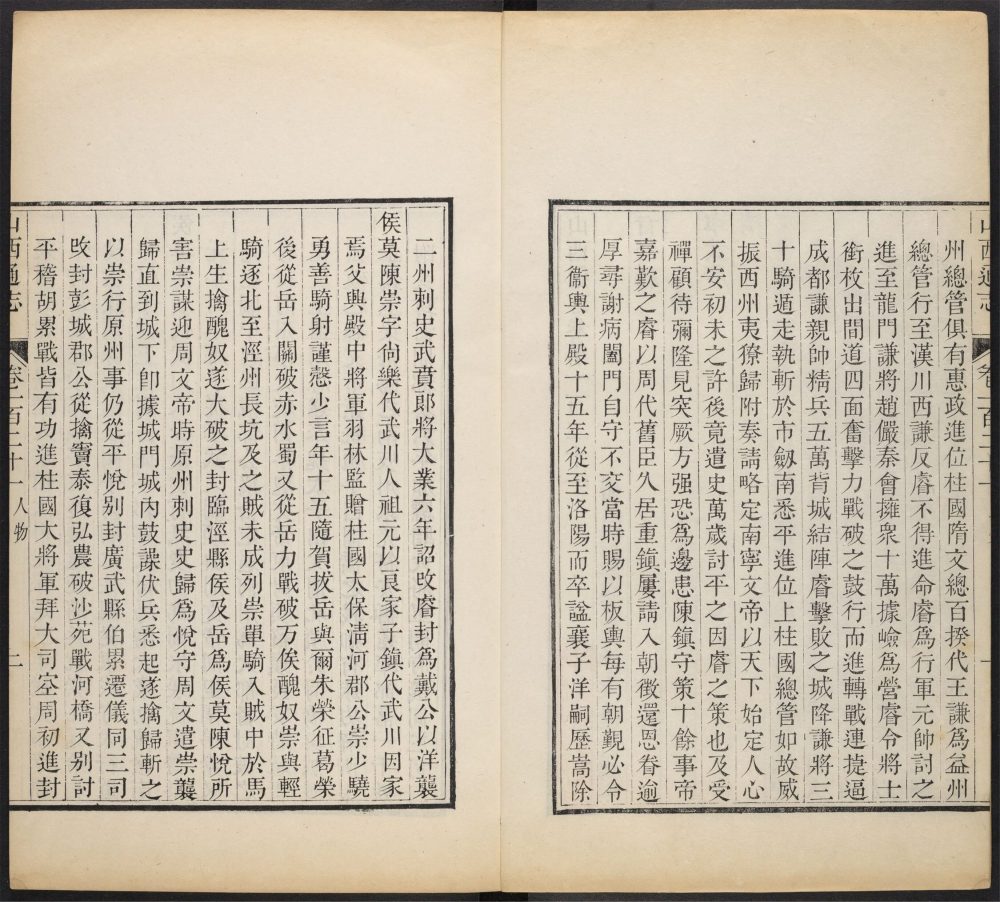 山西通志 卷一百二十一
州總管俱有惠政進位柱國隋文總百揆代王謙爲益州
總管行至漢川西謙反睿不得進命睿爲行軍元帥討之
進至龍門謙將趙儼秦會擁衆十萬據嶮爲營睿令將士
銜枚出間道四面奮擊力戰破之鼓行而進轉戰連捷逼
成都謙親帥精兵五萬背城結陣睿擊敗之城降謙將三
十騎遁走執斬於市劒南悉平進位上柱國總管如故威
振西州夷獠歸附奏請略定南寧文帝以天下始定人心
不安初未之許後竟遣史萬歲討平之因睿之策也及受
禪顧待彌隆見突厥方强恐爲邊患陳鎮守策十餘事帝
嘉歎之睿以周代舊臣久居重鎮屢請入朝徵還恩眷逾
厚尋謝病闔門自守不交當時賜以板輿每有朝覲必令
三衞輿上殿十五年從至洛陽而卒諡襄子洋嗣歷嵩除
二州刺史武賁郎將大業六年詔改睿封爲戴公以洋襲
侯莫陳崇字尙樂代武川人祖元以良家子鎮代武川因家
焉父興殿中將軍羽林監贈柱國太保淸河郡公崇少驍
勇善騎射謹愨少言年十五隨賀拔岳與爾朱榮征葛榮
後從岳入關破赤水蜀又從岳力戰破万俟醜奴崇與輕
騎逐北至涇州長坑及之賊未成列崇單騎入賊中於馬
上生擒醜奴遂大破之封臨涇縣侯及岳爲侯莫陳悅所
害崇謀迎周文帝時原州刺史史歸爲悅守周文遣崇襲
歸直到城下卽據城門城內鼓譟伏兵悉起遂擒歸斬之
以崇行原州事仍從平悅别封廣武縣伯累遷儀同三司
改封彭城郡公從擒竇泰復弘農破沙苑戰河橋又别討
平稽胡累戰皆有功進柱國大將軍拜大司空周初進封
山西通志 卷一百二十一 人物 二